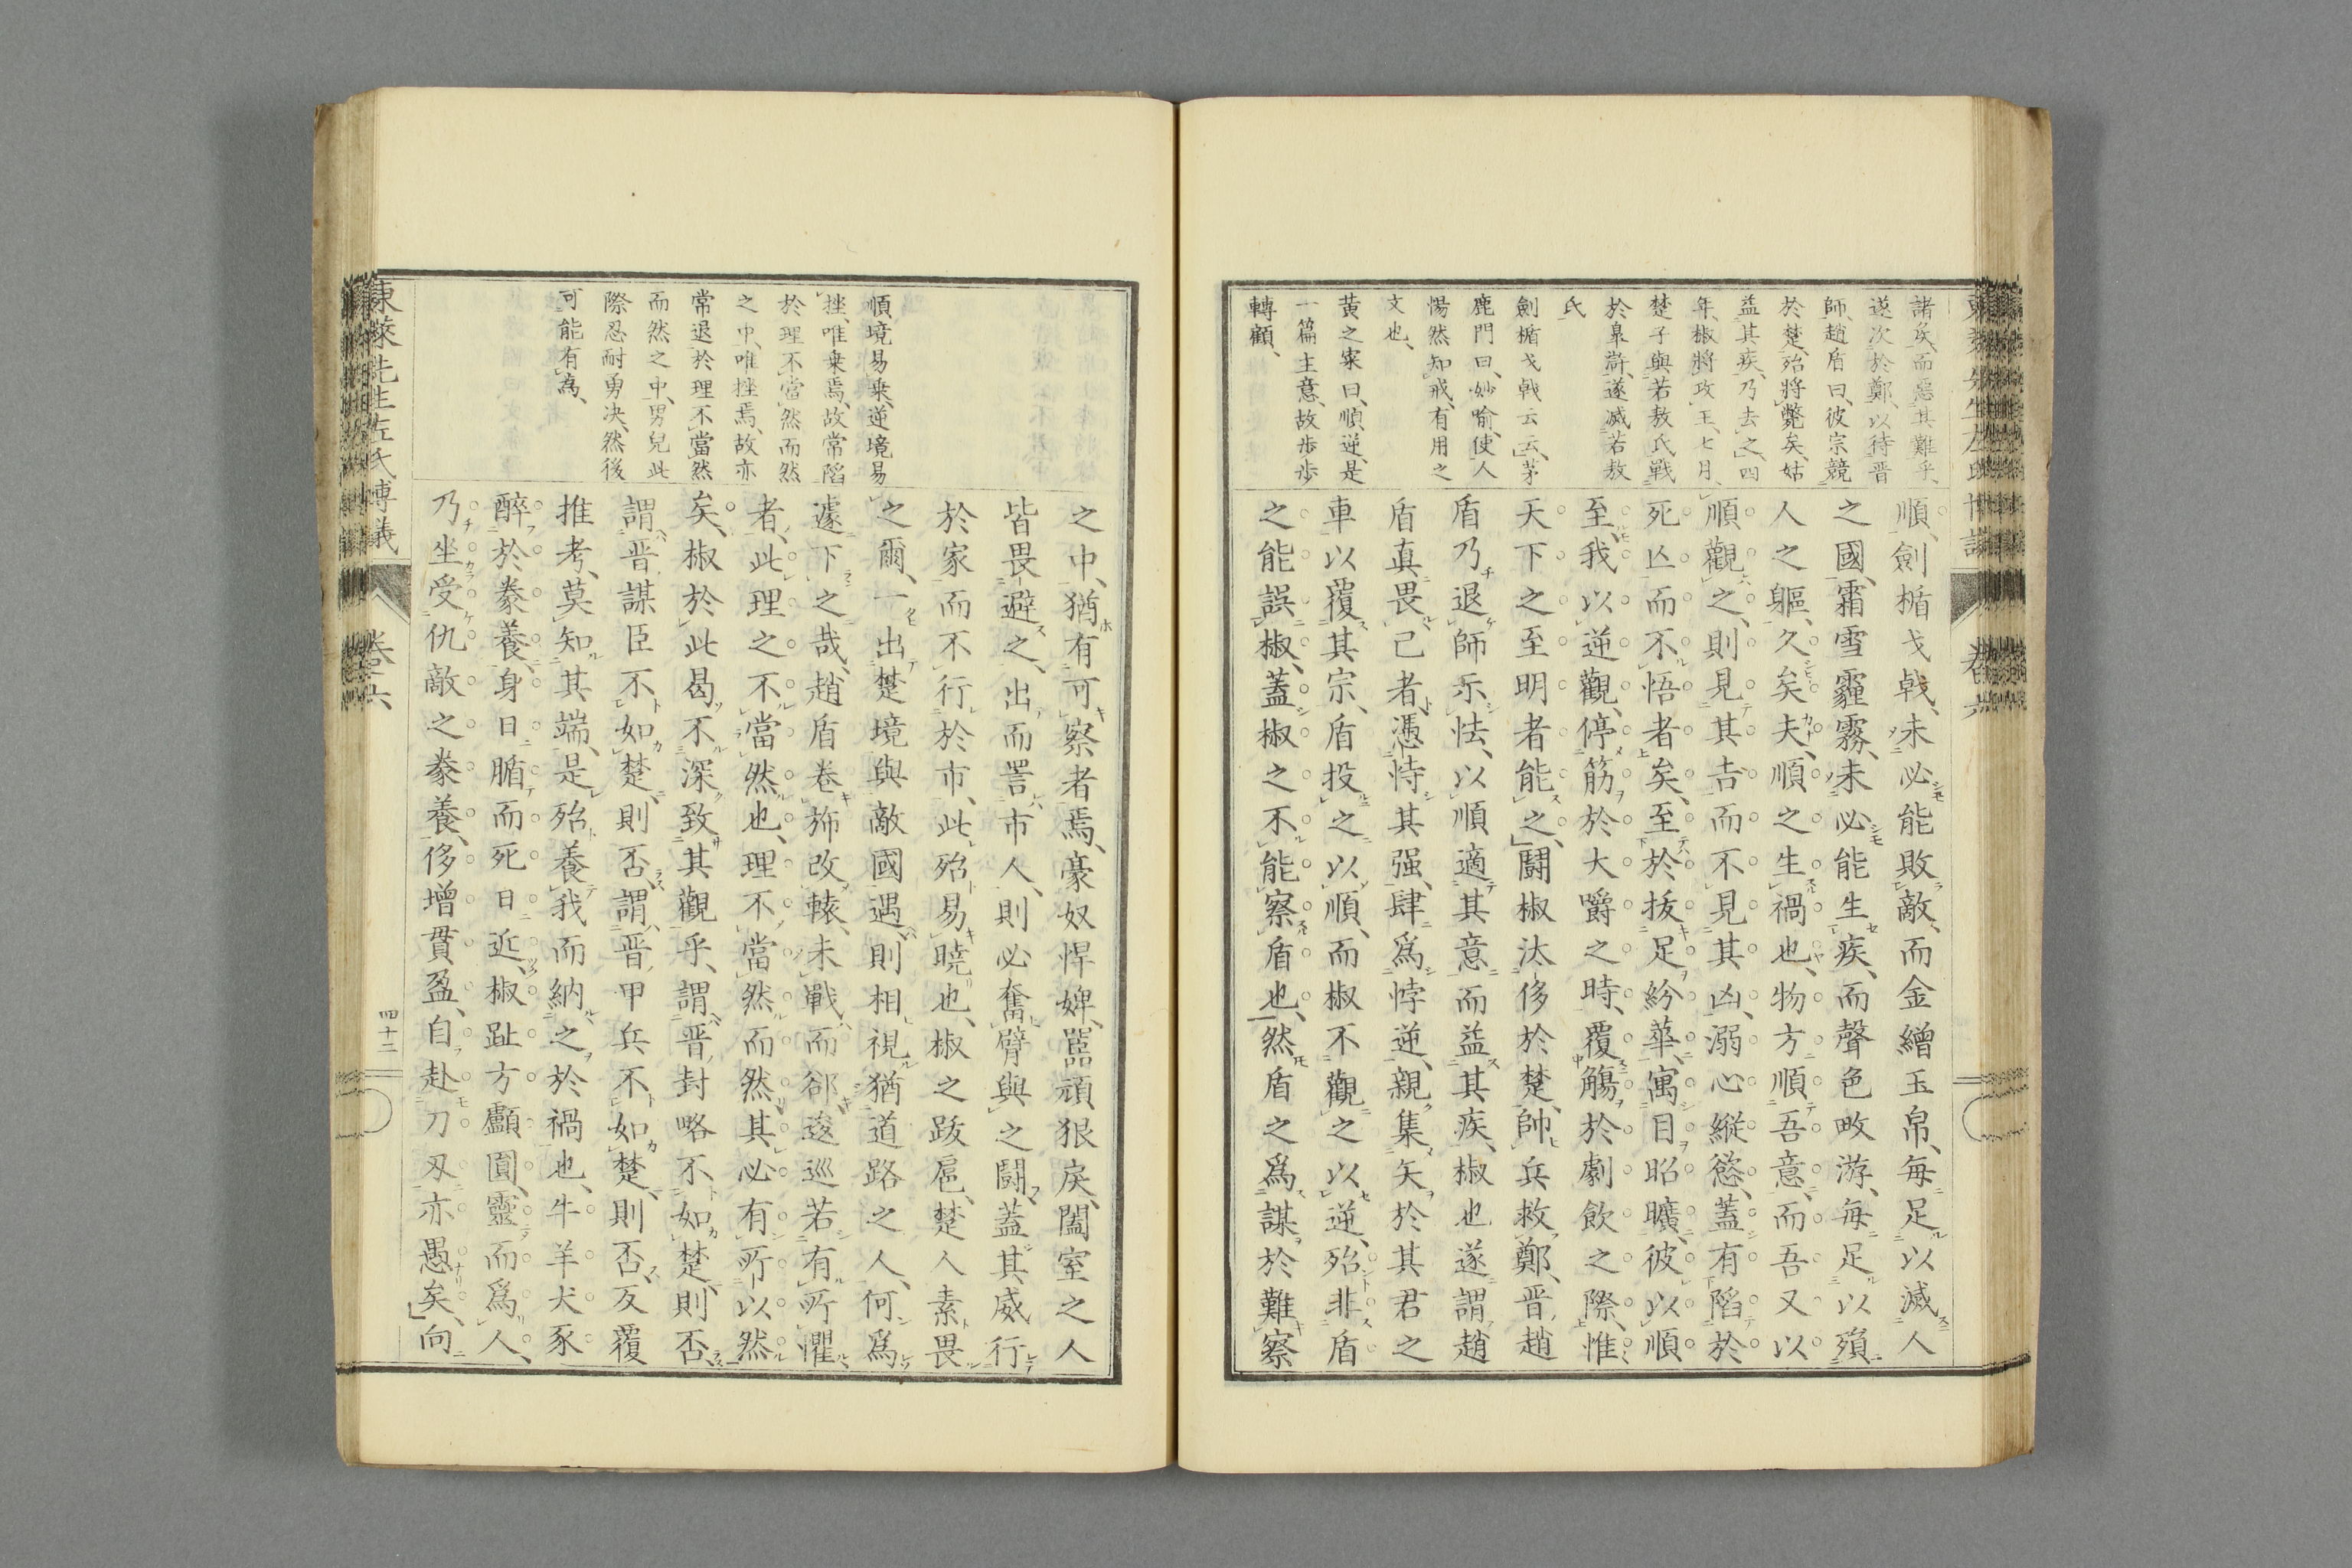 諸矦而惡其難乎、
遂次於鄭、以待晋
師、趙盾曰、彼宗競
於楚、殆將斃矣、姑
益其疾、乃去之、四
年、椒將攻王、七月、
楚子與若敖氏戰
於臯滸、遂滅若敖
氏
劍楯戈戟云云、茅
鹿門曰、妙喻、使人
惕然知戒、有用之
文也、
黄之寀曰、順逆、是
一篇主意、故歩歩
轉顧、
順、劍楯戈戟、未必能敗敵、而金繒玉帛、毎足以滅人
之國、霜雪霾霧、未必能生疾、而聲色畋游、毎足以殞
人之軀、久矣夫、順之生禍也、物方順吾意、而吾又以
順觀之、則見其吉而不見其凶、溺心縱慾、蓋有陷於
死亾而不悟者矣、至於抜足紛華、寓目昭曠、彼以順
至、我以逆觀、停筋於大嚼之時、覆觴於劇飲之際、惟
天下之至明者能之、鬪椒汰侈於楚、帥兵救鄭、晋趙
盾乃退師示怯、以順適其意、而益其疾、椒也遂謂趙
盾真畏己者、憑恃其强、肆爲悖逆、親集矢於其君之
車、以覆其宗、盾投之以順、而椒不觀之以逆、殆非盾
之能誤椒、蓋椒之不能察盾也、然盾之爲謀、於難察
東萊先生左氏博議
卷六
順境易乗、逆境易
挫、唯乗焉、故常陷
於理不當然而然
之中、唯挫焉、故亦
常退於理不當然
而然之中、男兒此
際忍耐勇决、然後
可能有為、
之中、猶有可察者焉、豪奴悍婢、嚚頑狠戾、闔室之人
皆畏避之、出而詈市人、則必奮臂與之鬪、蓋其威行
於家、而不行於市、此殆易曉也、椒之跋扈、楚人素畏
之爾、一出楚境、與敵國遇、則相視猶道路之人、何爲
遽下之哉、趙盾卷斾改轅、未戰而郤、逡巡若有所懼
者、此理之不當然也、理不當然而然、其必有所以然
矣、椒於此曷不深致其觀乎、謂晋封略不如楚、則否、
謂晋謀臣不如楚、則否、謂晋甲兵不如楚、則否、反覆
推考、莫知其端、是殆養我而納之於禍也、牛羊犬豕
醉於豢養、身日腯而死日近、椒趾方顱圓、靈而爲人、
乃坐受仇敵之豢養、侈增貫盈、自赴刀刃、亦愚矣、向
東萊先生左氏博議
卷六
四十二